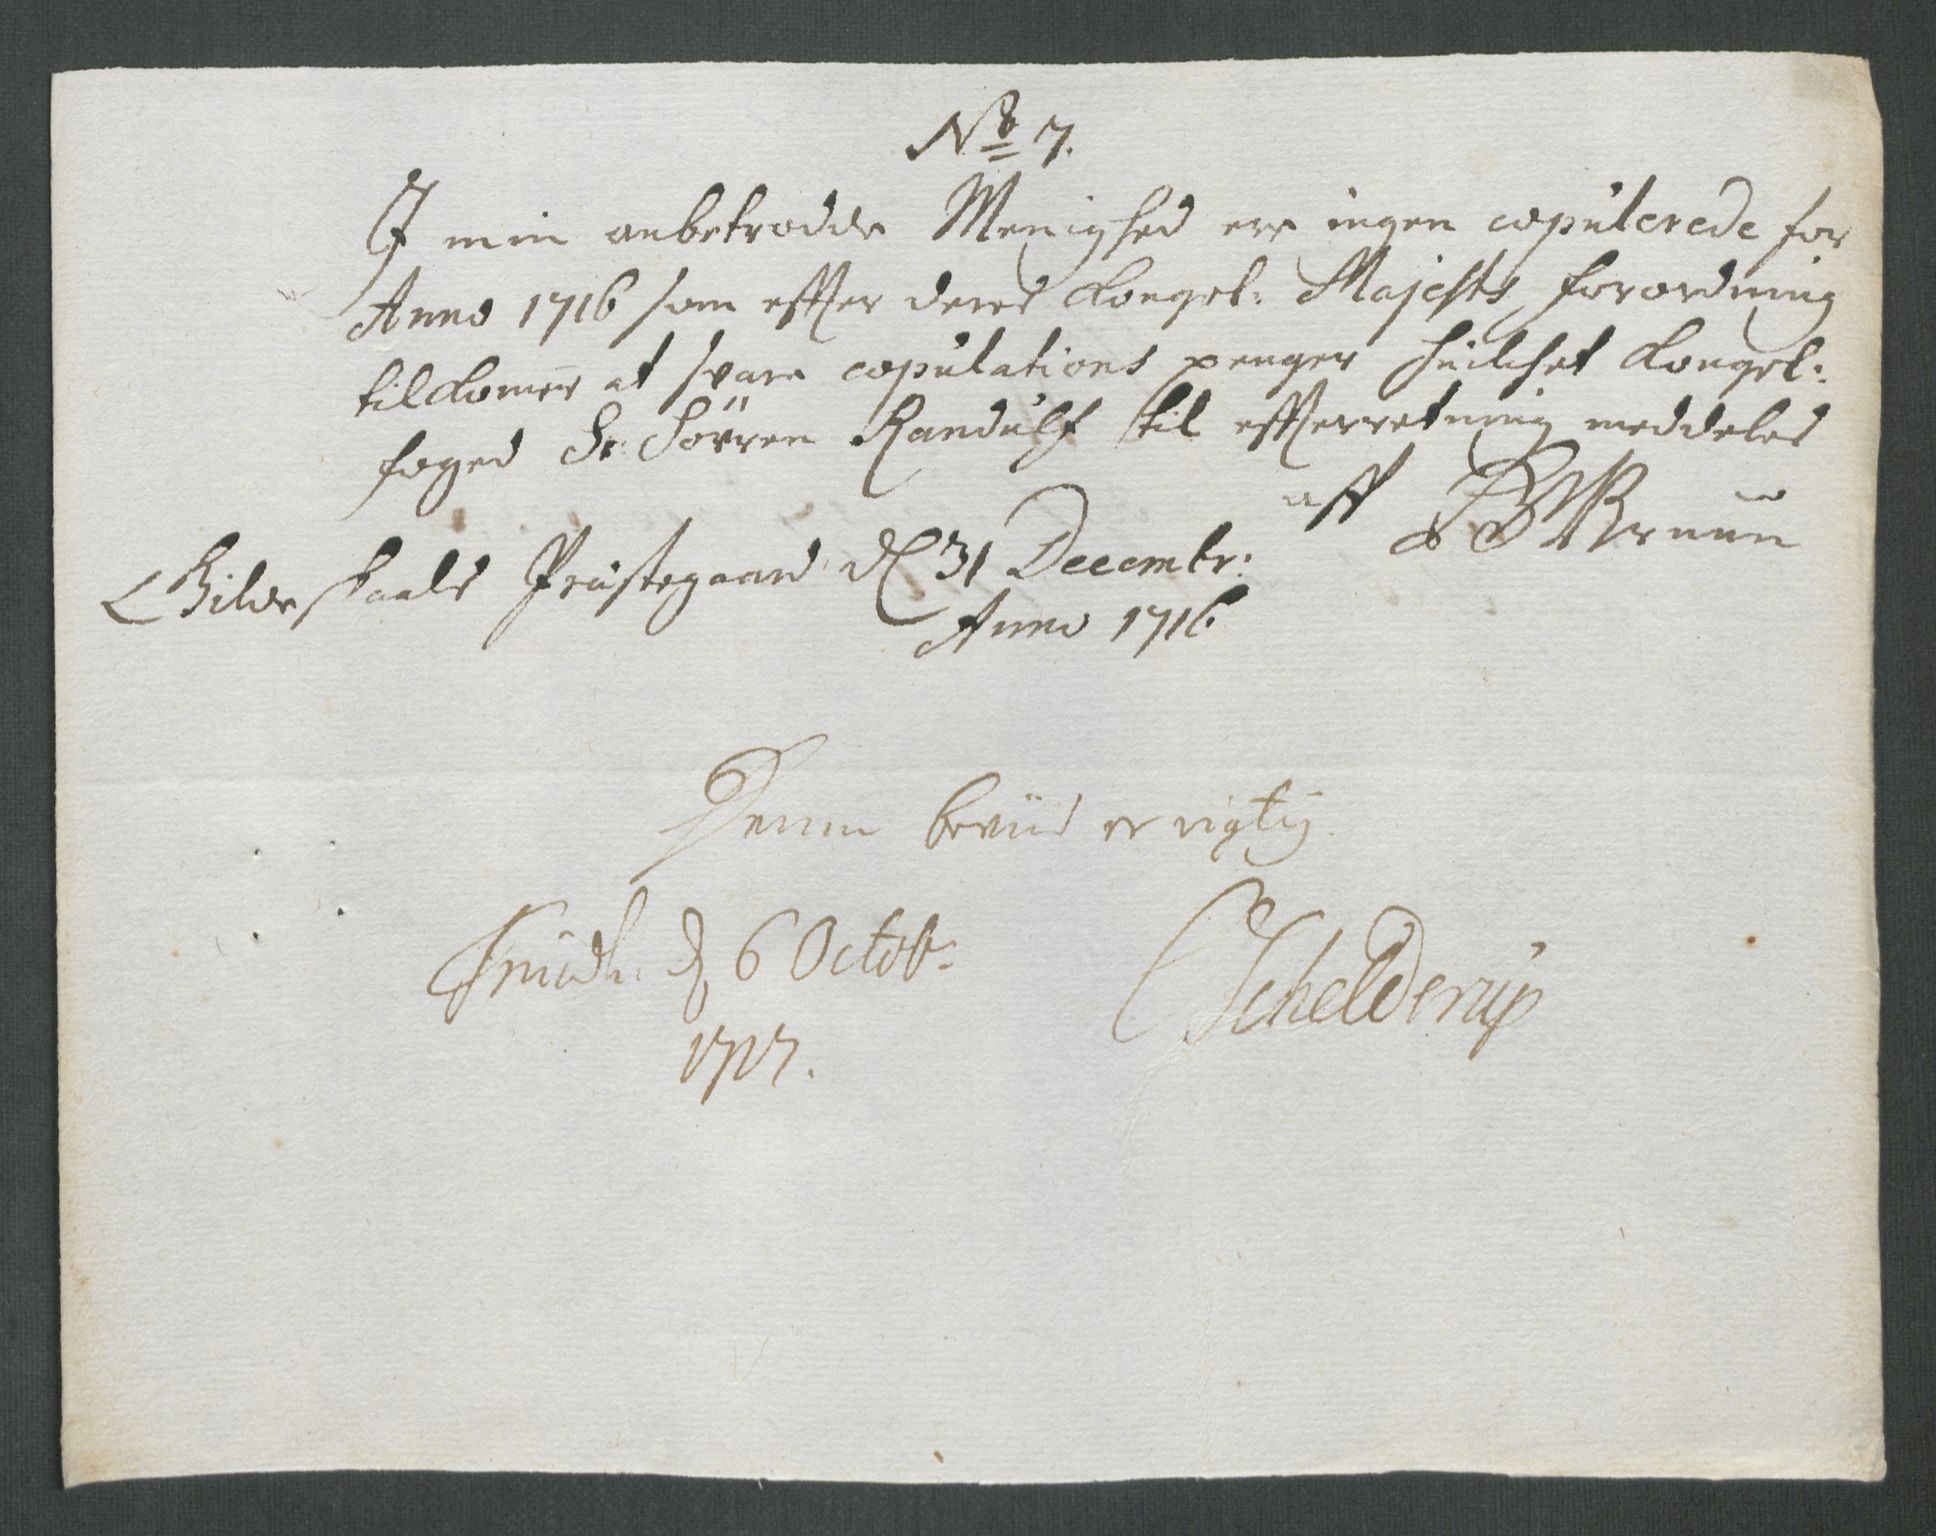 No 7.
I min anbetrodde Menighed ere ingen copulerede for
Anno 1716 som effter deres Kongel: Majests forordning
tilkomer at svare copulations penger huilchet Kongel:
foged Sr. Sörren Randulf til effterretning meddeles
aff Bruun
Gilderskaals Præstegaard d 31 Decembr:
Anno 1716
Denne beviis er rigtig
Trudh: d 6 Octob:
1717.
Schelderup